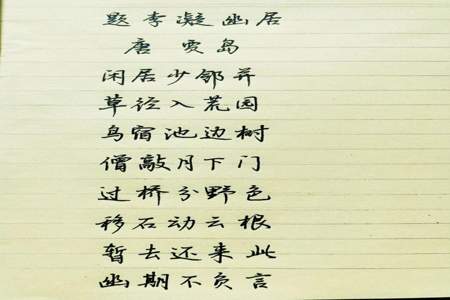 题李凝幽居
唐 贾岛
闲居少邻并
草径入荒园
鸟宿池边树
僧敲月下门
过桥分野色
移石动云根
暂去还来此
幽期不负言